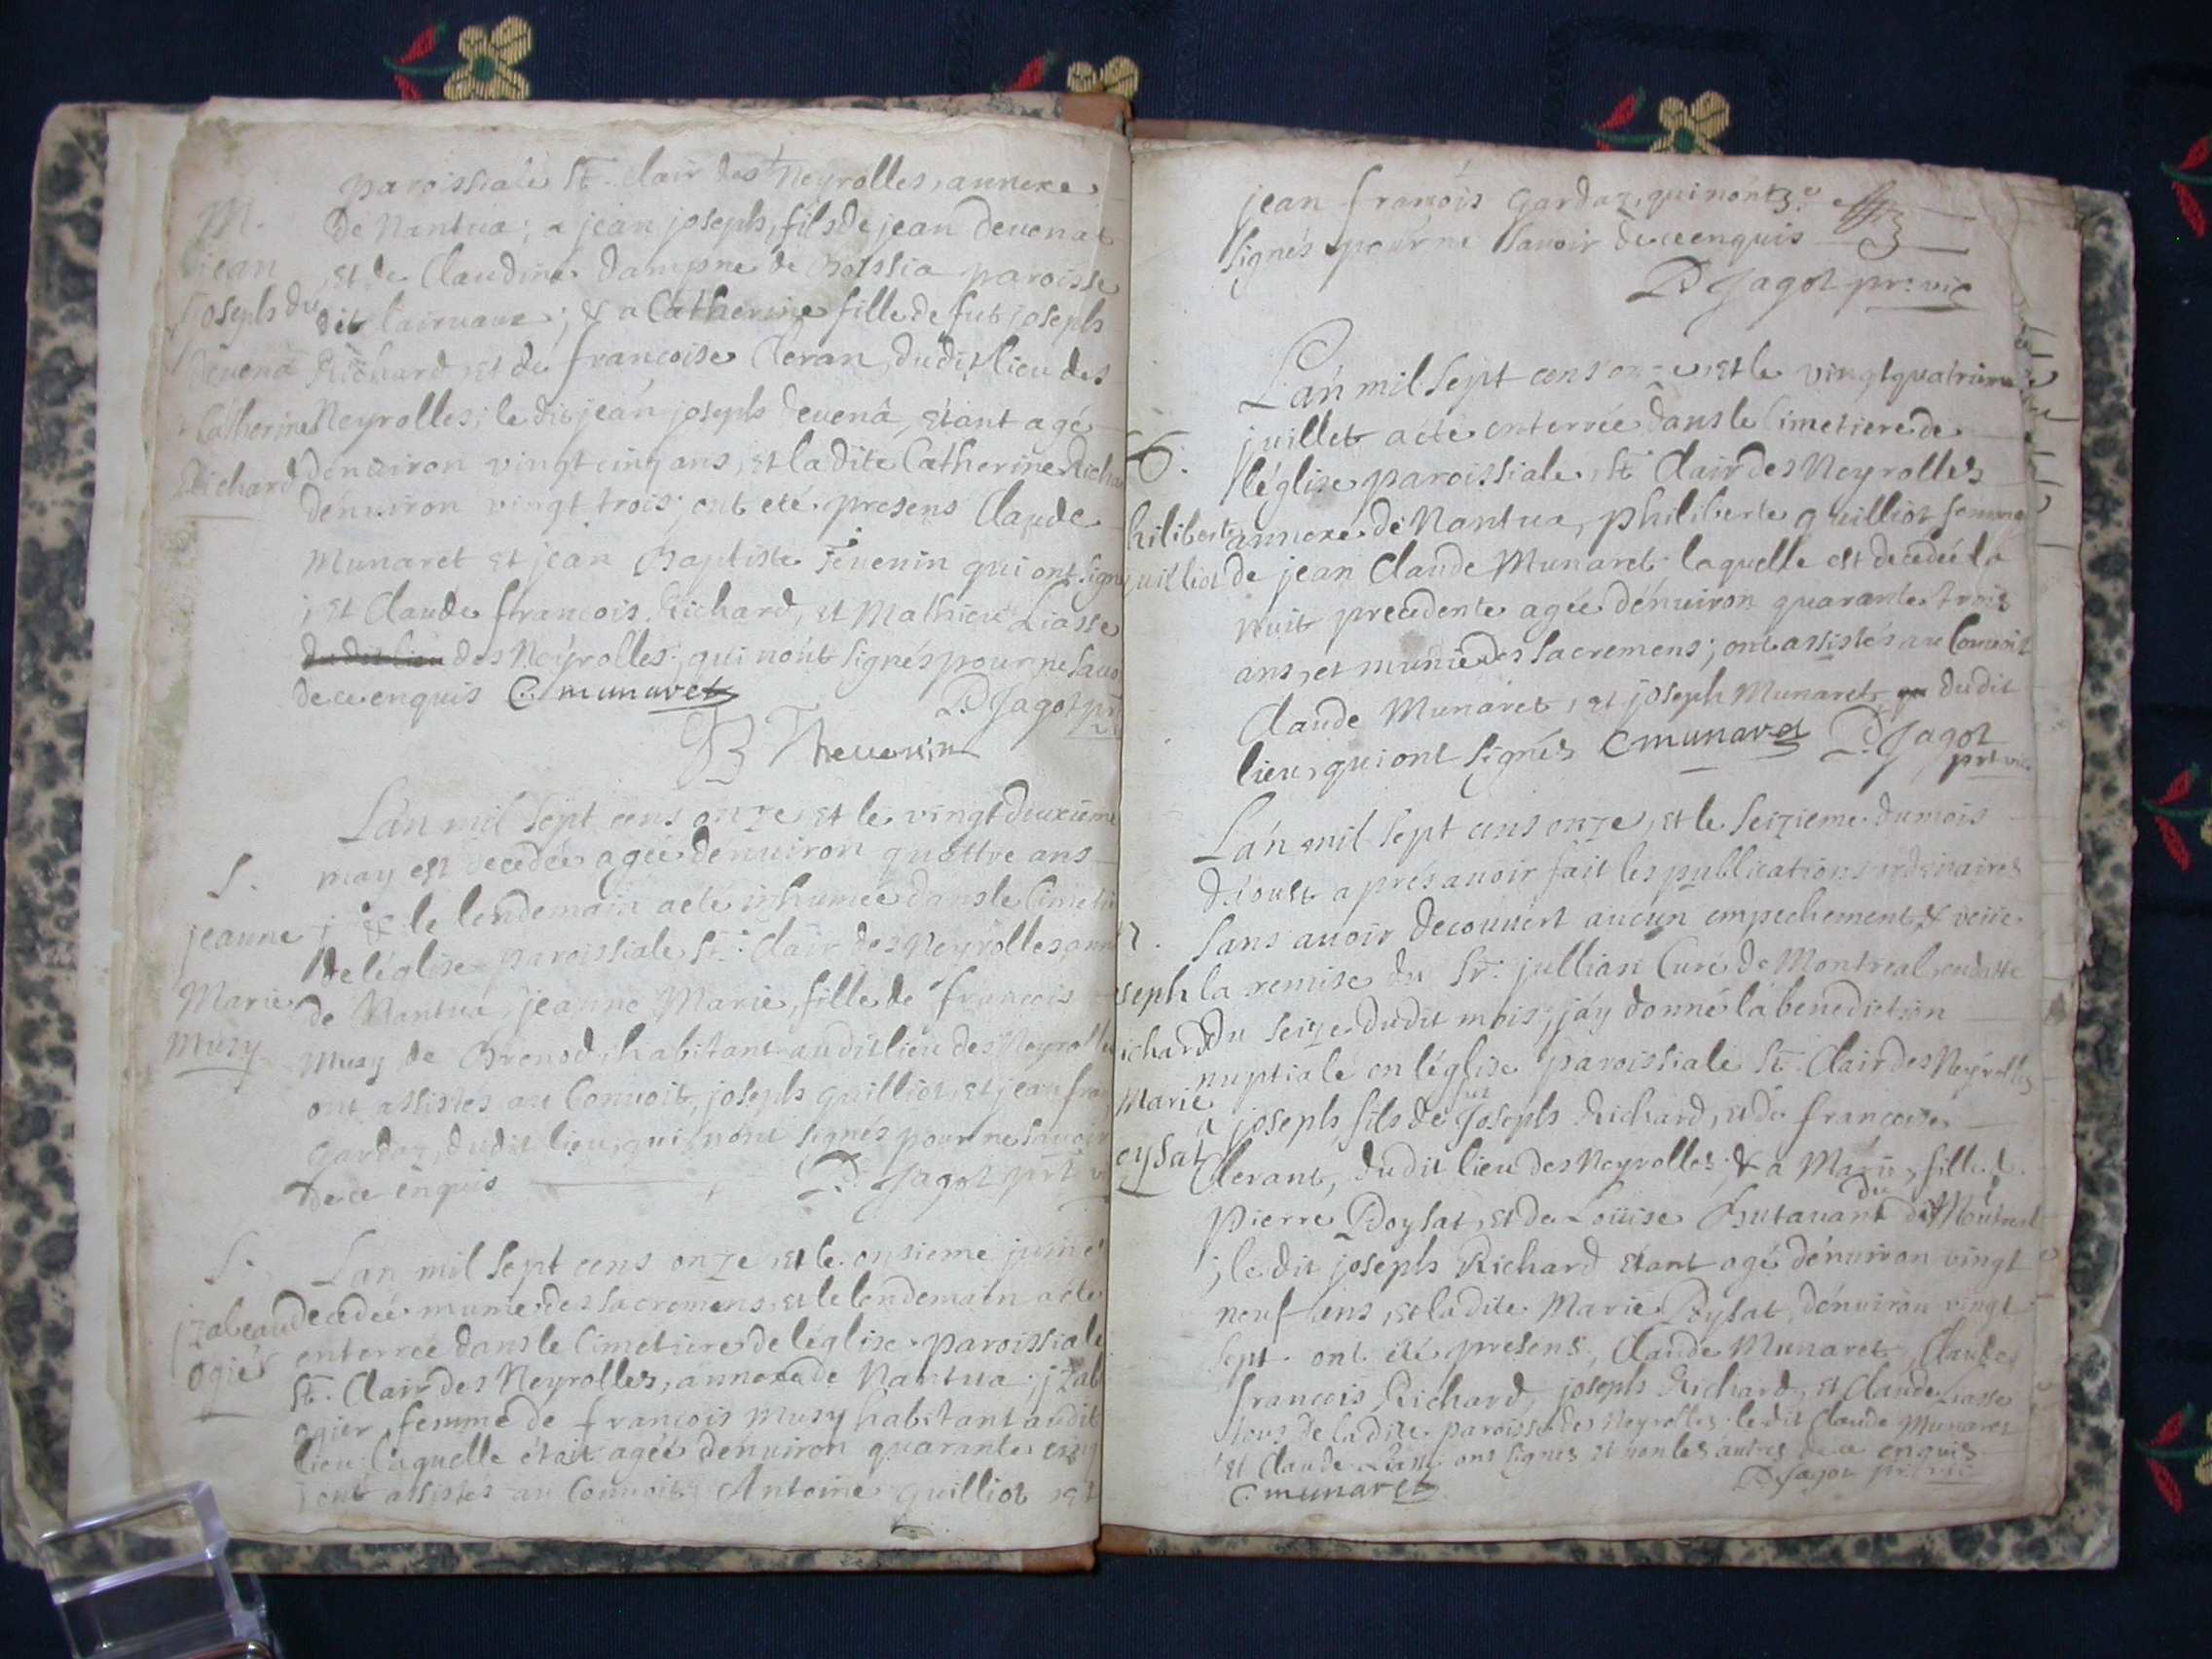 paroissiale St. Clair des Neyrolles, annexe
M. de Nantua; a jean joseph, fils de jean devenat
jean et de Claudine dampne de Boissia paroisse
joseph du dit Clairvaux; & a Catherine fille de fut joseph
devena Richard, et de francoise Cleran, dudit lieu des
Catherine Neyrolles; le dit jean joseph devenâ, étant agé
Richard d'enuiron vingt cinq ans, et la dite Catherine Richa
d'enuiron vingt trois; ont eté presens Claude
Munaret et jean Baptiste Tevenin qui ont signé
; et Claude francois Richard, et Mathieu Liasse
du dit lieu des Neyrolles; qui n'ont signés pour ne sauo
de ce enquis C. munaret D Jagot pr
JB Thevenin
L'an mil sept cens onze, et le vingt deuxieme
S. may est decedée agée d'enuiron quattre ans
jeanne ; & le lendemain a eté inhumée dans le Cimeti
de l'église paroissiale St. Clair des Neyrolles ann
Marie de Nantua, jeanne Marie, fille de francois
Musy Musy de Brenod, habitant audit lieu des Neyrolles
ont assistés au Convoit, joseph guilliot, et jean fran
Gardaz, dudit lieu, qui n'ont signés pour ne savoir
de ce enquis D. Jagot prt v
S. L'an mil sept cens onze, et le onsieme juin e
jzabeau decedée munie des sacremens, et le lendemain a eté
enterrée dans le Cimetiere de l'église paroissiale
ogier St. Clair des Neyrolles, annexe de Nantua; jzab
ogier, femme de francois Musy habitant audit
lieu laquelle étoit agée d'enuiron quarante cinq
; ont assistés au Convoit Antoine guilliot et
jean francois Gardaz, qui n'ont
signés pour ne savoir de ce enquis
D Jagot pr. vic
L'an mil sept cens onze, et le vingt quatrieme
juillet a eté enterrée dans le Cimetiere de
S. l'église paroissiale, St. Clair des Neyrolles
hiliberte annexe de Nantua, philiberte guilliot femme
guilliot de jean Claude Munaret laquelle est decedée la
nuit precedente agée d'enuiron quarante trois
ans, et munie des sacremens; ont assistés au Convoit
Claude Munaret, et joseph Munaret, dudit
lieu, qui ont signés C munaret D. Jagot
prt vic
L'an mil sept cens onze, et le seizieme du mois
d'aoust apres avoir fait les publications ordinaires
sans avoir decouvert aucun empechement, & veue
seph la remise du Sr. jullian Curé de Montreal en datte
ichard du seize dudit mois, j'ay donné la benediction
nuptiale en l'église paroissiale St. Clair des Neyrolles
Marie a joseph fils de fut joseph Richard, et de francoise
eysat Clerant, dudit lieu des Neyrolles; & a Marie, fille de
pierre Poysat, et de Loüise Butavant du dit Montreal
; le dit joseph Richard étant agé d'enuiron vingt
neuf ans, et la dite Marie Poysat d'enuiron vingt
sept. ont été presens, Claude Munaret, Claude
francois Richard, joseph Richard, et Claude Liasse
tous de la dite paroisse des Neyrolles. le dit Claude Munaret
et Claude Liasse ont signés et non les autres de ce enquis
C. munaret D. Jagot prt vic